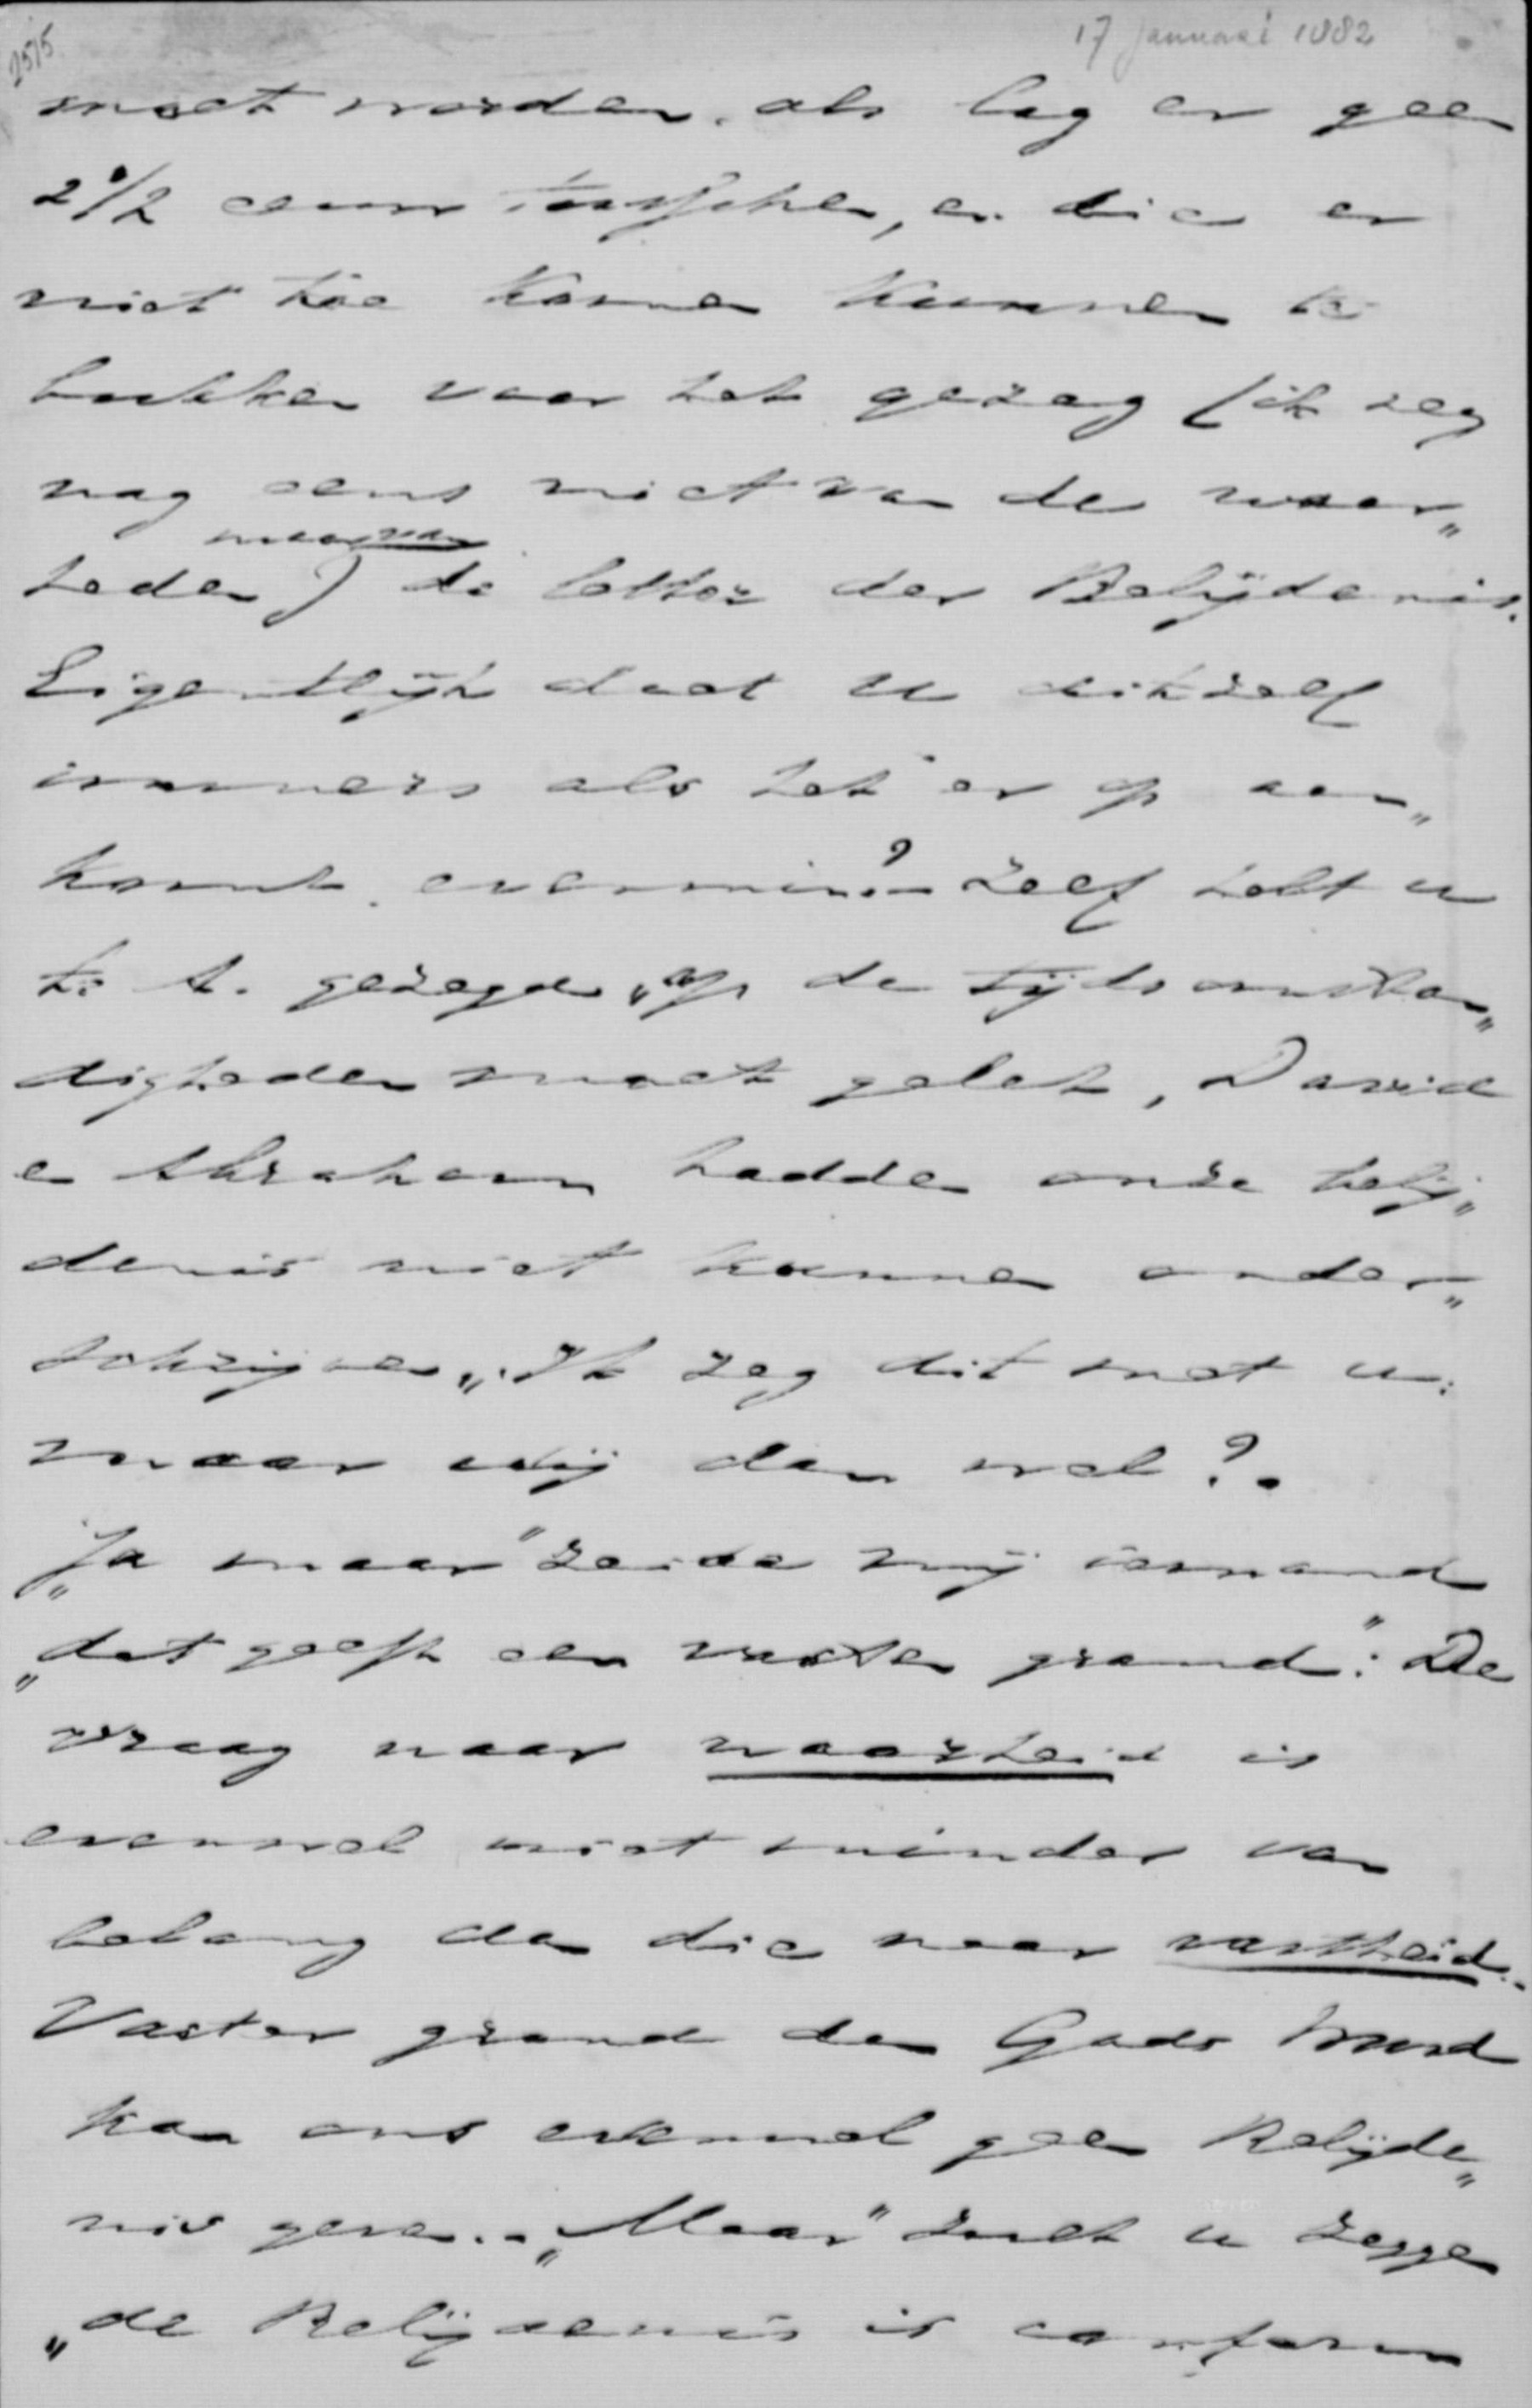 2515
17 Januari 1882
moet worden, als lag er geen
2 1/2 eeuw tusschen, en die er
niet toe komen kunnen te
bukken voor het gezag (ik zeg
nog eens niet van de waar„
maar van
heden) de letter der Belijdenis.
Eigentlijk doet u dit zelf
immers als het er op aan„
komt evenmin? - Zelf hebt u
t. A. gezegd „op de tijdsomstan„
digheden moet gelet, David
en Abraham hadden onze belij„
denis niet kunnen onder„
schrijven„. Ik zeg dit met u:
maar wij dan wel?.
„Ja maar" zeide mij iemand
„dat geeft een vasten grond": De
vraag naar waarheid is
evenwel niet minder van
belang dan die naar vastheid..
Vaster grond dan Gods Woord
kan ons evenwel geen Belijde„
nis geven. - „Maar" zult u zeggen
„de Belijdenis is conform